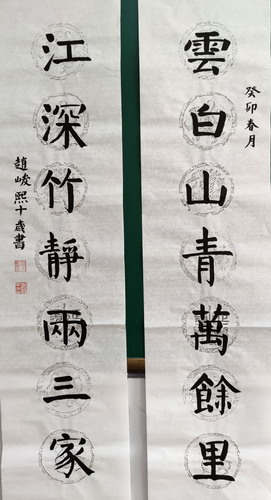 雲白山青萬餘里
癸卯春月
江深竹靜兩三家
趙峻熙十歲書